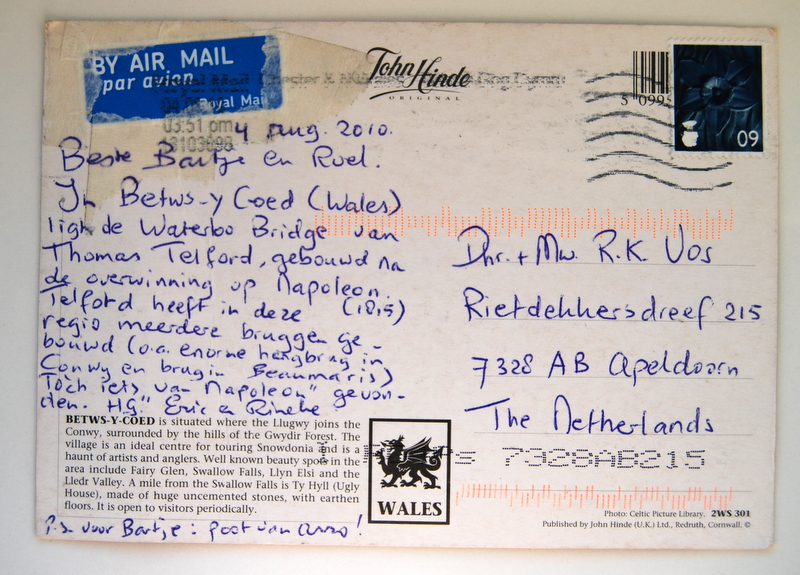 BY AIR MAIL
par avion
Royal Mail
03:51 pm
John Hinde
ORIGINAL
5 0995
09
4 aug. 2010.
Beste Bartje en Roel.
In Betws-y Coed (Wales)
ligt de Waterloo Bridge van
Thomas Telford, gebouwd na
de overwinning op Napoleon.
Telford heeft in deze (1815)
regio meerdere bruggen ge-
bouwd (o.a. enorme hangbrug in
Conwy en brug in Beaumaris)
Toch iets van "Napoleon" gevon-
den. HG. Eric en Rineke
Dhr. + Mw. R.K. Vos
Rietdekkersdreef 215
7328 AB Apeldoorn
The Netherlands
7328AB215
BETWS-Y-COED is situated where the Llugwy joins the
Conwy, surrounded by the hills of the Gwydir Forest. The
village is an ideal centre for touring Snowdonia and is a
haunt of artists and anglers. Well known beauty spots in the
area include Fairy Glen, Swallow Falls, Llyn Elsi and the
Lledr Valley. A mile from the Swallow Falls is Ty Hyll (Ugly
House), made of huge uncemented stones, with earthen
floors. It is open to visitors periodically.
WALES
P.S. voor Bartje: post van Arno!
Photo: Celtic Picture Library. 2WS 301
Published by John Hinde (U.K.) Ltd., Redruth, Cornwall. ©